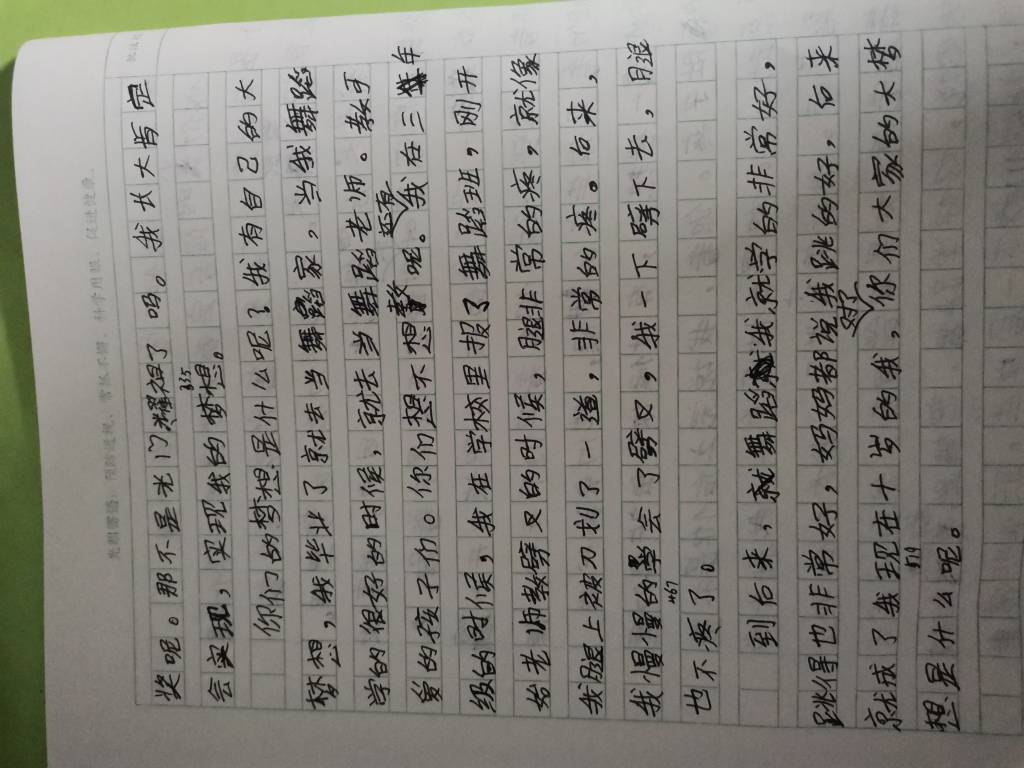 奖呢。那不是光门耀祖了吗。我长大肯定
会实现，实现我的梦想。
你们的梦想是什么呢？我有自己的大
梦想，我毕业了就去当舞蹈家，当我舞蹈
学的很好的时候，就去当舞蹈老师。教可
爱的孩子们。你们想不想听呢。我在三年
级的时候，我在学校里报了舞蹈班，刚开
始老师教劈叉的时候，腿非常的疼，就像
我腿上被刀划了一道，非常的疼。后来，
我慢慢的学会了劈叉，我一下劈下去，腿
也不疼了。
到后来，就舞蹈我就学的非常好，
跳得也非常好，妈妈都说我跳的好，后来
就成了我现在十岁的我，你们大家的大梦
想是什么呢。